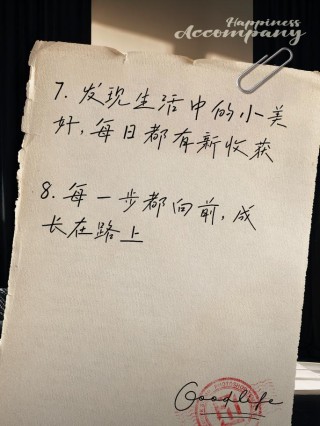 Happiness
Accompany
7. 发现生活中的小美
好,每日都有新收获
8. 每一步都向前,成
长在路上
Goodlife